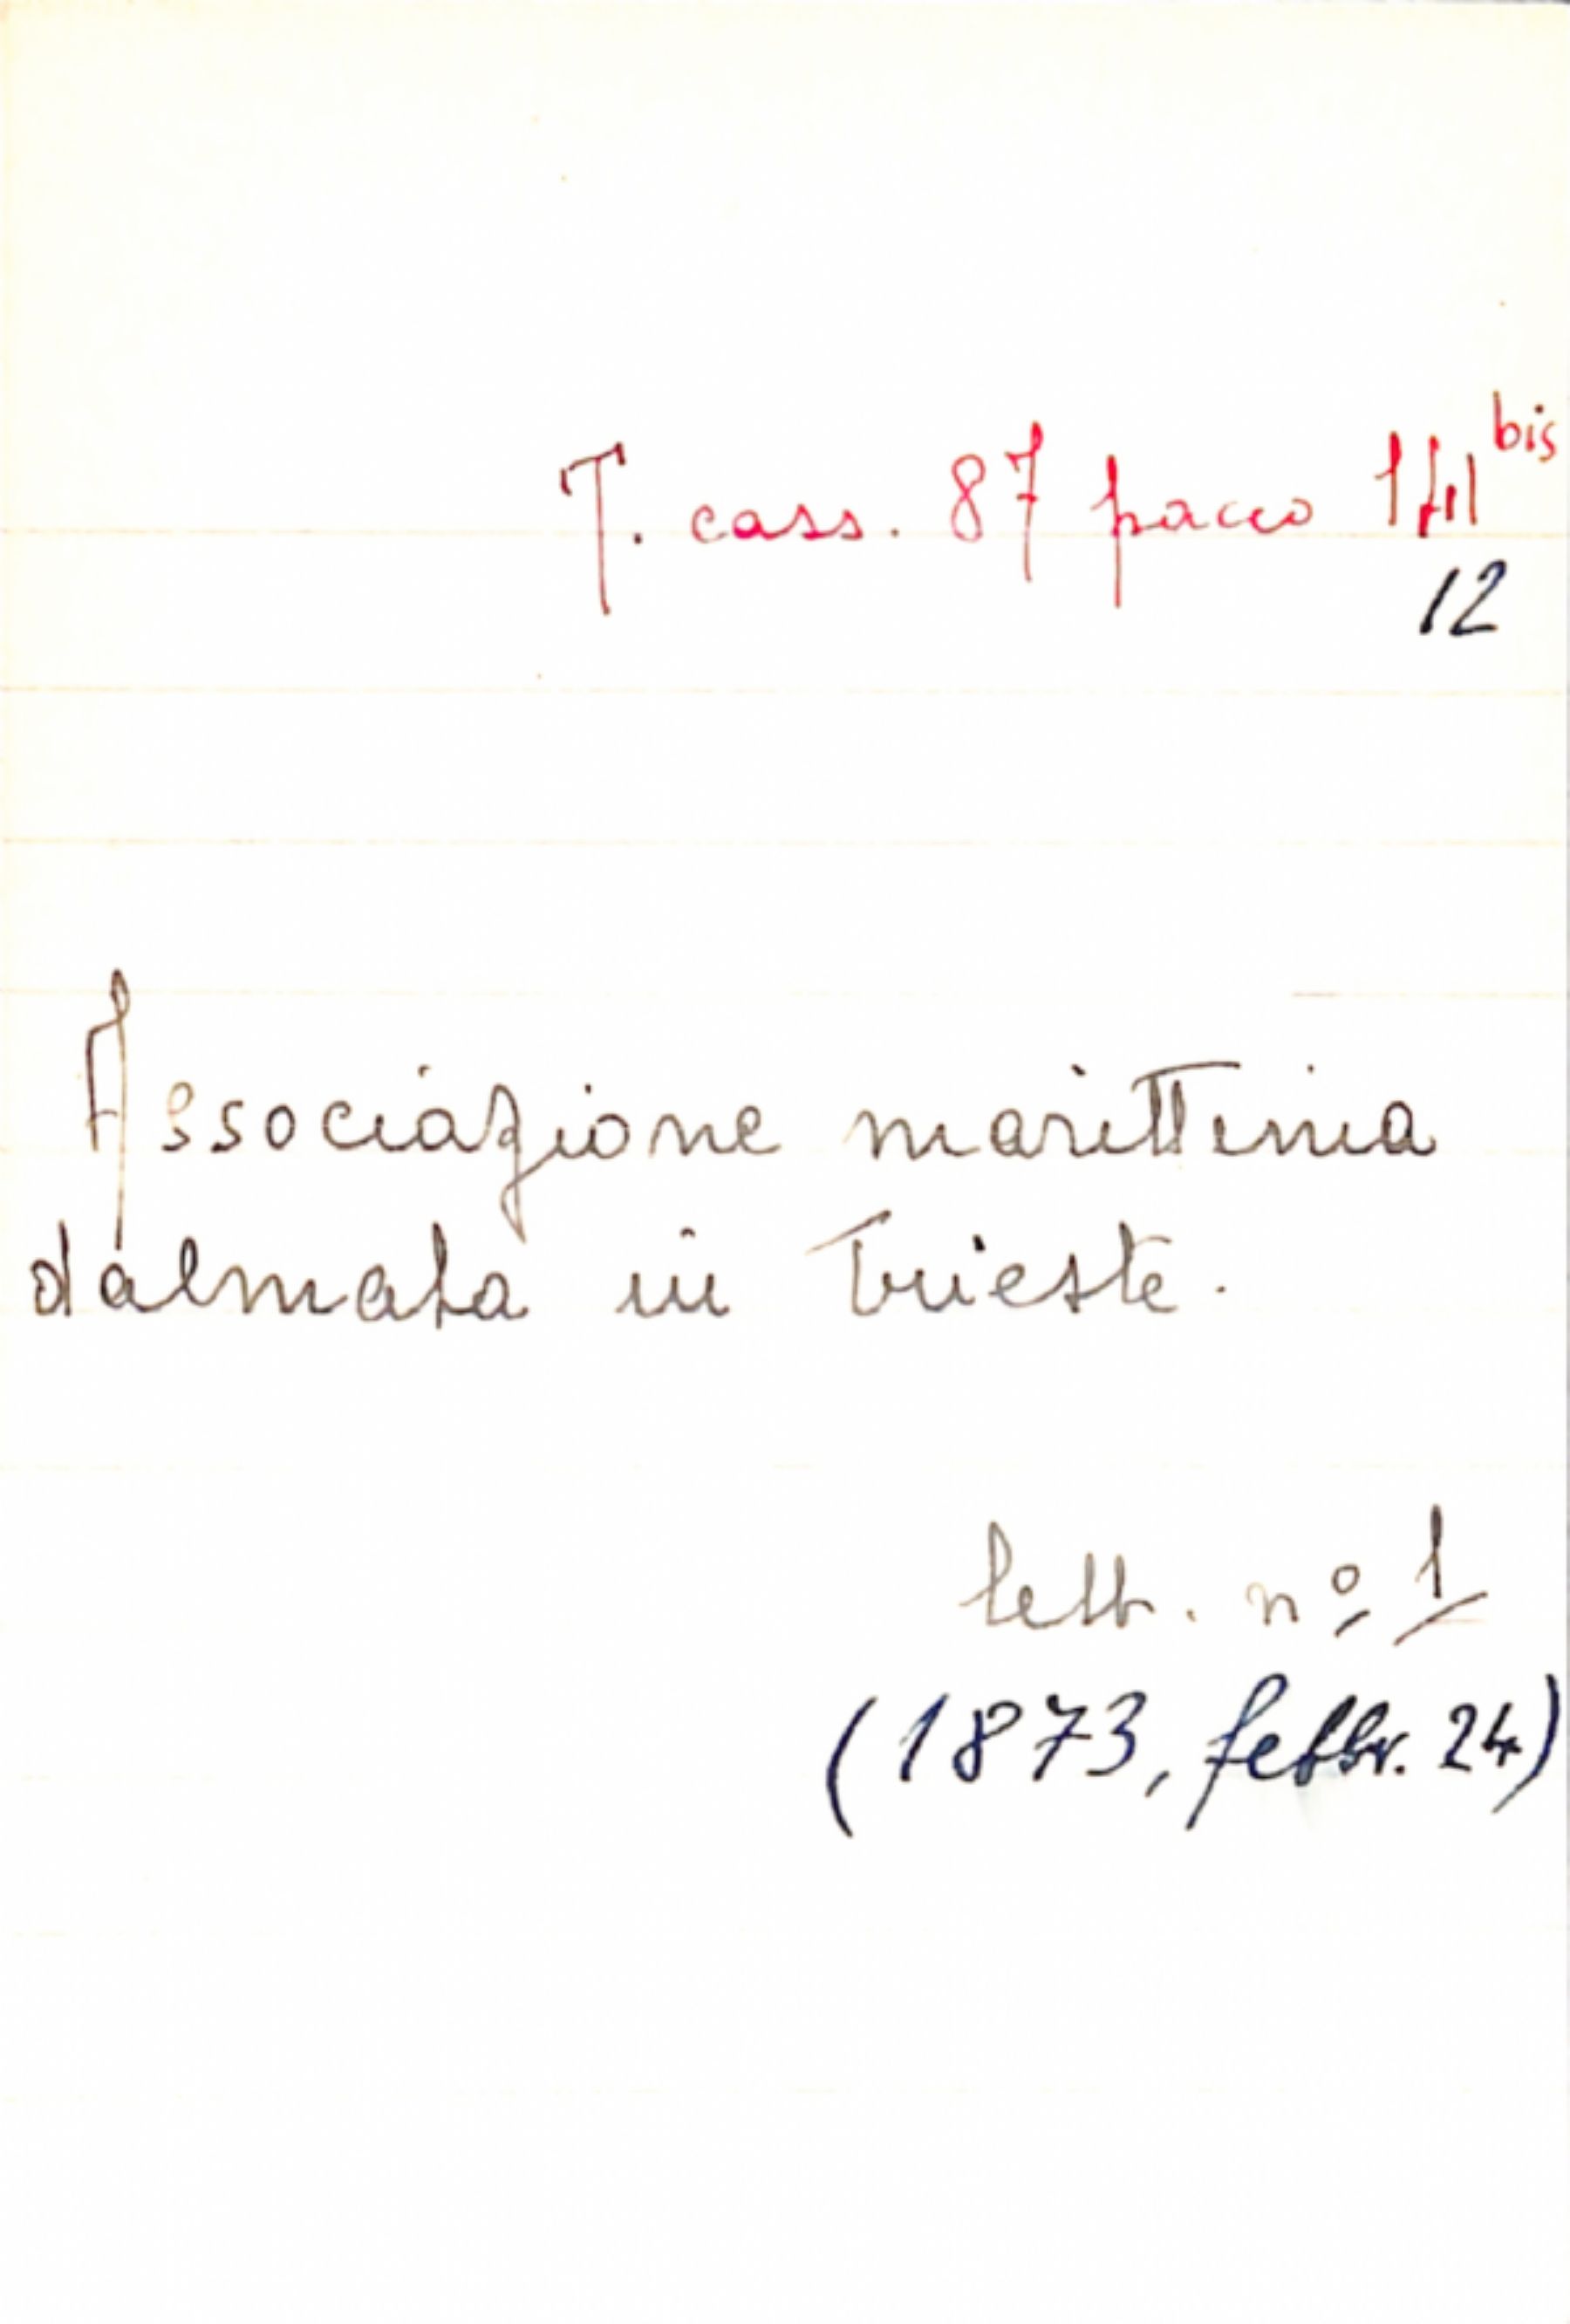 T. cass. 87 pacco 141 bis
12
Associazione marittima
dalmata in Trieste.
lett. nº 1
(1873, febbr. 24)